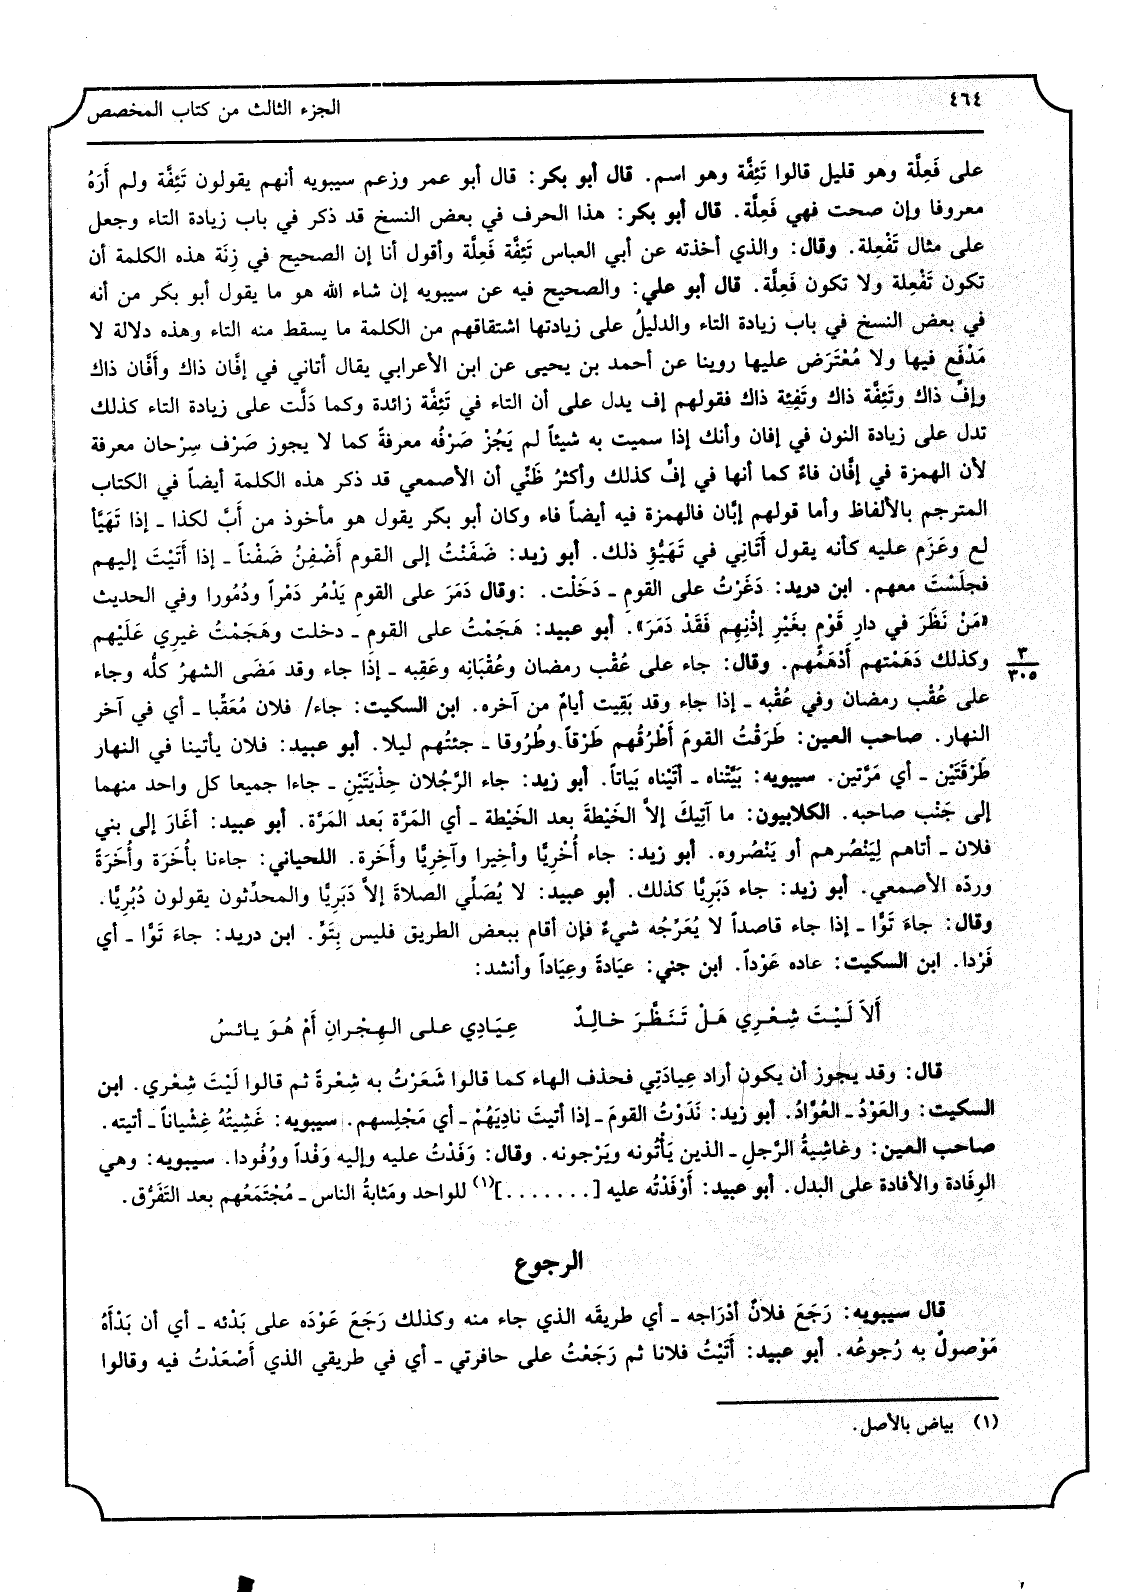 ٤٦٤
الجزء الثالث من كتاب المخصص
على فَعِلَّة وهو قليل قالوا تَئِفَّة وهو اسم. قال أبو بكر: قال أبو عمر وزعم سيبويه أنهم يقولون تَئِفَّة ولم أَرَهُ
معروفا وإن صحت فهي فَعِلَّة. قال أبو بكر: هذا الحرف في بعض النسخ قد ذكر في باب زيادة التاء وجعل
على مثال تَفْعِلة. وقال: والذي أخذته عن أبي العباس تَئِفَّة فَعِلَّة وأقول أنا إن الصحيح في زِنَة هذه الكلمة أن
تكون تَفْعِلة ولا تكون فَعِلَّة. قال أبو علي: والصحيح فيه عن سيبويه إن شاء الله هو ما يقول أبو بكر من أنه
في بعض النسخ في باب زيادة التاء والدليلُ على زيادتها اشتقاقهم من الكلمة ما يسقط منه التاء وهذه دلالة لا
مَدْفَع فيها ولا مُعْتَرَض عليها روينا عن أحمد بن يحيى عن ابن الأعرابي يقال أتاني في إفَّان ذاك وأَفَّان ذاك
وإفِّ ذاك وتَئِفَّة ذاك وتَفِئة ذاك فقولهم إف يدل على أن التاء في تَئِفَّة زائدة وكما دَلَّت على زيادة التاء كذلك
تدل على زيادة النون في إفان وأنك إذا سميت به شيئاً لم يَجُزْ صَرْفُه معرفةً كما لا يجوز صَرْف سِرْحان معرفة
لأن الهمزة في إفَّان فاءٌ كما أنها في إفٍّ كذلك وأكثرُ ظَنِّي أن الأصمعي قد ذكر هذه الكلمة أيضاً في الكتاب
المترجم بالألفاظ وأما قولهم إبَّان فالهمزة فيه أيضاً فاء وكان أبو بكر يقول هو مأخوذ من أَبَّ لكذا ـ إذا تَهَيَّأ
لع وعَزَم عليه كأنه يقول أَتَانِي في تَهَيُّؤِ ذلك. أبو زيد: ضَفَنْتُ إلى القوم أَضْفِنُ ضَفْناً ـ إذا أَتَيْتَ إليهم
فجلَسْتَ معهم. ابن دريد: دَغَرْتُ على القومِ ـ دَخَلْت. :وقال دَمَرَ على القومِ يَدْمُر دَمْراً ودُمُورا وفي الحديث
«مَنْ نَظَرَ في دارِ قَوْمٍ بغَيْرِ إذْنِهِم فَقَدْ دَمَرَ». أبو عبيد: هَجَمْتُ على القومِ ـ دخلت وهَجَمْتُ غيرِي عَلَيْهم
وكذلك دَهَمْتهم أَدْهَمُهم. وقال: جاء على عُقْب رمضان وعُقْبَانِه وعَقِبه ـ إذا جاء وقد مَضَى الشهرُ كلُّه وجاء
٣
٣٠٥
على عُقْب رمضان وفي عُقْبه ـ إذا جاء وقد بَقِيت أيامٌ من آخره. ابن السكيت: جاء/ فلان مُعَقِّبا ـ أي في آخر
النهار. صاحب العين: طَرَقْتُ القومَ أَطْرُقُهم طَرْقاً وطُرُوقا ـ جئتُهم ليلا. أبو عبيد: فلان يأتينا في النهار
طَرْقَتَيْن ـ أي مَرَّتين. سيبويه: بَيَّتْناه ـ أتَيْناه بَياتاً. أبو زيد: جاء الرَّجُلان حِذْيَتَيْنِ ـ جاءا جميعا كل واحد منهما
إلى جَنْب صاحبه. الكلابيون: ما آتِيكَ إلاَّ الخَيْطةَ بعد الخَيْطة ـ أي المَرَّة بَعد المَرَّة. أبو عبيد: أغَارَ إلى بني
فلان ـ أتاهم لِيَنْصُرهم أو يَنْصُروه. أبو زيد: جاء أُخْرِيًّا وأخِيرا وآخِرِيًّا وأَخَرة. اللحياني: جاءنا بأُخَرَة وأُخَرَةً
وردّه الأصمعي. أبو زيد: جاء دَبَرِيًّا كذلك. أبو عبيد: لا يُصَلِّي الصلاةَ إلاَّ دَبَرِيًّا والمحدِّثون يقولون دُبُرِيًّا.
وقال: جاءَ تَوًّا ـ إذا جاء قاصداً لا يُعَرِّجُه شيءٌ فإن أقام ببعض الطريق فليس بِتَوٍّ. ابن دريد: جاءَ تَوًّا ـ أي
فَرْدا. ابن السكيت: عاده عَوْداً. ابن جني: عيَادةً وعِيَاداً وأنشد:
أَلاَ لَيْتَ شِعْرِي هَلْ تَنَظَّرَ خالِدٌ عِيَادِي على الهِجْرانِ أَمْ هُوَ يائسُ
قال: وقد يجوز أن يكون أراد عِيادَتِي فحذف الهاء كما قالوا شَعَرْتُ به شِعْرةً ثم قالوا لَيْتَ شِعْري. ابن
السكيت: والعَوْدُ ـ العُوَّادُ. أبو زيد: نَدَوْتُ القومَ ـ إذا أتيتَ نادِيَهُمْ ـ أي مَجْلِسهم. سيبويه: غَشِيتُهُ غِشْياناً ـ أتيته.
صاحب العين: وغاشِيةُ الرَّجلِ ـ الذين يَأْتُونه ويَرْجونه. وقال: وَفَدْتُ عليه وإليه وَفْداً ووُفُودا. سيبويه: وهي
الوِفَادة والأفادة على البدل. أبو عبيد: أَوْفَدْتُه عليه [.......](١) للواحد ومَثابةُ الناس ـ مُجْتَمَعُهم بعد التَفَرُّق.
الرجوع
قال سيبويه: رَجَعَ فلانٌ أدْرَاجه ـ أي طريقَه الذي جاء منه وكذلك رَجَعَ عَوْدَه على بَدْئه ـ أي أن بَدْأَهُ
مَوْصولٌ به رُجوعُه. أبو عبيد: أَتَيْتُ فلانا ثم رَجَعْتُ على حافرتي ـ أي في طريقي الذي أَصْعَدْتُ فيه وقالوا
(١) بياض بالأصل.